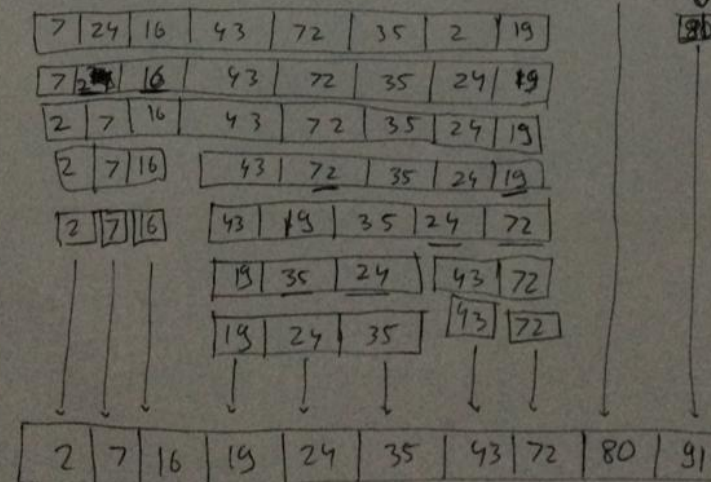 7 24 16 43 72 35 2 19
7 2 16 43 72 35 24 19
2 7 16 43 72 35 24 19
2 7 16 43 72 35 24 19
2 7 16 43 19 35 24 72
19 35 24 43 72
19 24 35 43 72
2 7 16 19 24 35 43 72 80 91